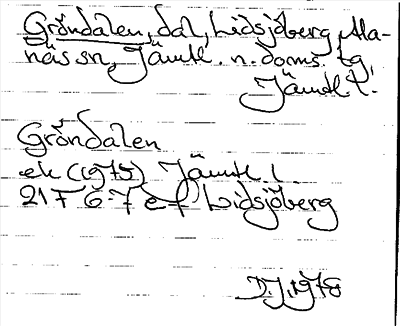 Gröndalen, dal, Lidsjöberg, Ala-
näs sn, Jämtl. n. doms. tg,
Jämtl. l.
Gröndalen
ek (1975) Jämtl. l.
21 F 6-7 e-f Lidsjöberg
D.J. 1978